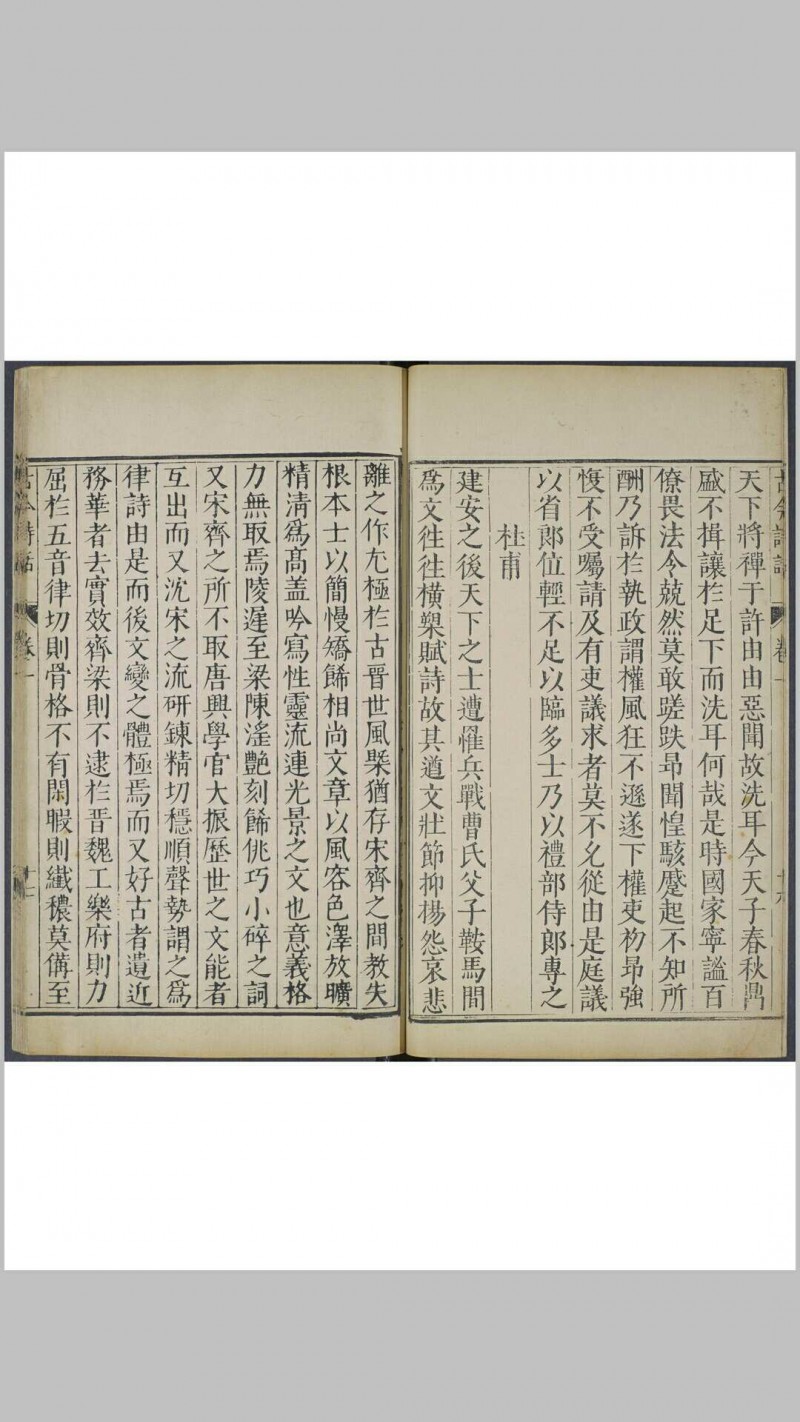 古今詩話
卷一
十六
天下將禪于許由由惡聞故洗耳今天子春秋鼎
盛不揖讓於足下而洗耳何哉是時國家寧謐百
僚畏法令兢然莫敢蹉跌昂聞惶駭蹙起不知所
酬乃訴於執政謂權風狂不遜遂下權吏初昂強
愎不受囑請及有吏議求者莫不允從由是庭議
以省郎位輕不足以臨多士乃以禮部侍郎專之
杜甫
建安之後天下之士遭罹兵戰曹氏父子鞍馬間
爲文徃徃横槊賦詩故其遒文壯節抑楊怨哀悲
離之作尢極於古晋世風槩猶存宋齊之間教失
根本士以簡慢矯餙相尚文章以風容色澤放曠
精清爲髙盖吟寫性靈流連光景之文也意義格
力無取焉陵遲至梁陳滛艷刻餙佻巧小碎之詞
又宋齊之所不取唐興學官大振歴世之文能者
互出而又沈宋之流研鍊精切穩順聲勢謂之爲
律詩由是而後文變之體極焉而又好古者遺近
務華者去實效齊梁則不逮於晋魏工樂府則力
屈於五音律切則骨格不有閑暇則纎穠莫備至
古今詩話
卷一